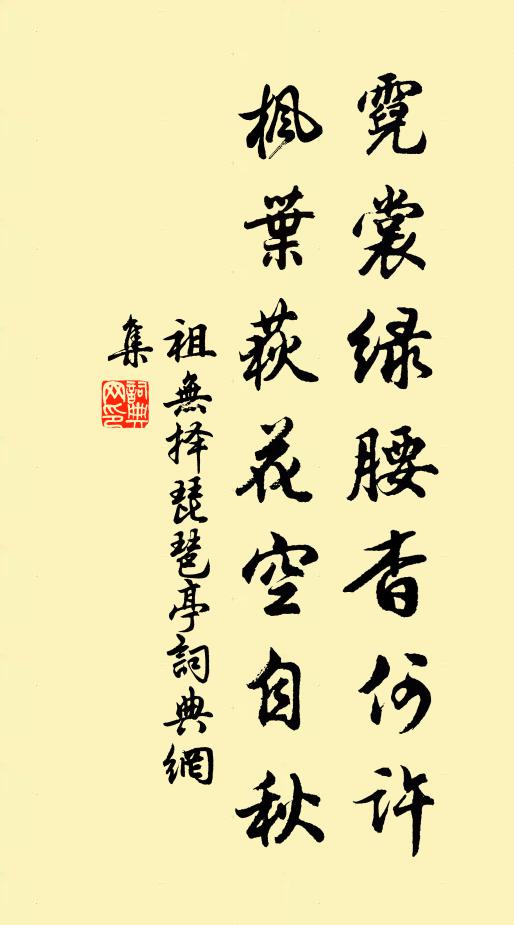 霓裳绿腰杳何许
枫葉荻花空自秋
祖無择琵琶亭詞典網
集
詞典网印